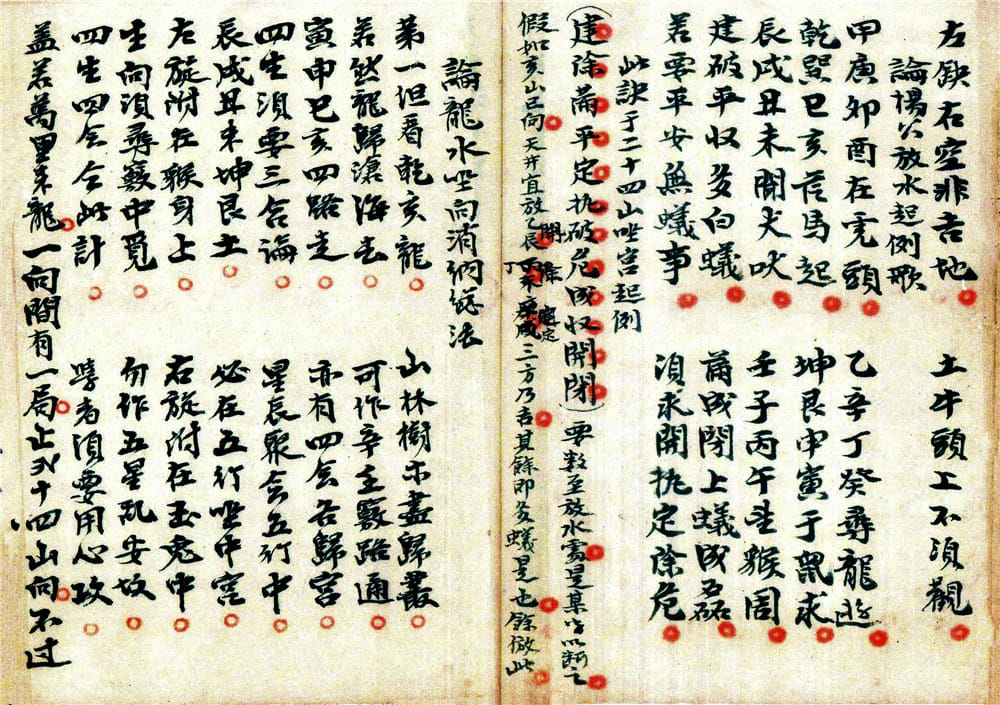 左缺右空非吉地　土牛頭上不須觀
論楊公放水起例歌
甲庚卯酉在虎頭　乙辛丁癸尋龍遊
乾巽巳亥居馬起　坤艮申寅于鼠求
辰戌丑未開犬吠　壬子丙午是猴周
建破平収多白蟻　蒲成閉上蟻成
若要平安無蟻事　須求開执定除危
此訣于二十四山坐宮起例
（建除蒲平定执破危成収開閉）要數至放水處是某字以断之
假如亥山巳向天井宜放乙辰丁未庚戌三方乃吉其餘即多蟻是也餘倣此
開 除 定
論龍水坐向消納總法
第一但看乾亥龍　山林樹木盡歸叢
若然龍歸滄海去　可作辛壬竅路通
寅申巳亥四路走　亦有四会各歸宮
四生須要三合論　星辰聚会五行中
辰戌丑未坤艮土　必在五行坐中宮
左旋附在猴身上　右旋附在玉兔中
生向須尋竅中覓　勿作五星乱安坟
四生四会合此計　學者須要用心攻
盖若萬里来龍一向間有一局止弍十四山向不过